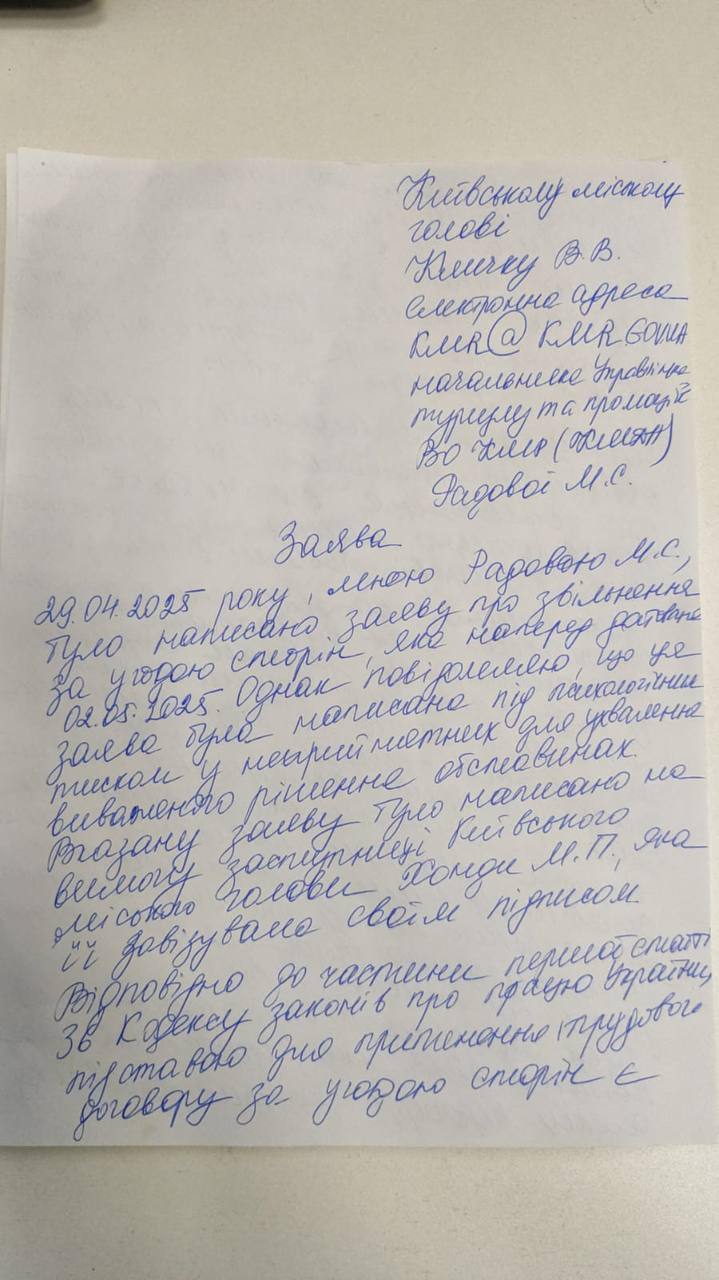 Київському міському
голові
Кличку В.В.
електронна адреса
KMR@KMR GOV.UA
начальника Управління
туризму та промоцій
ВО КМР (КМДА)
Радової М.С.
Заява
29.04.2025 року, мною Радовою М.С.,
було написано заяву про звільнення
за угодою сторін, яка наперед датована
02.05.2025. Однак повідомляю, що ця
заява була написана під психологічним
тиском у неприйнятних для ухвалення
виваженого рішення обставинах.
Вказану заяву було написано на
вимогу заступниці Київського
міського голови Хонди М.П., яка
її завізувала своїм підписом.
Відповідно до частини першої статті
36 Кодексу законів про працю України,
підставою для припинення трудового
договору за угодою сторін є